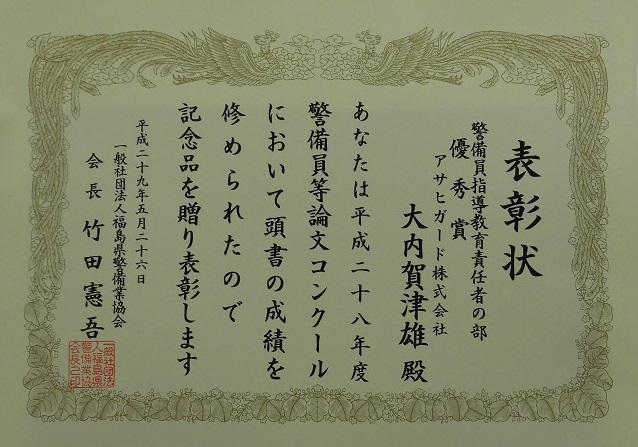 表彰状
警備員指導教育責任者の部
優秀賞
アサヒガード株式会社
大内賀津雄 殿
あなたは平成二十八年度
警備員等論文コンクール
において頭書の成績を
修められたので
記念品を贈り表彰します
平成二十九年五月二十六日
一般社団法人福島県警備業協会
会長 竹田憲吾
一般社団法
人福島県
警備業協
会長之印